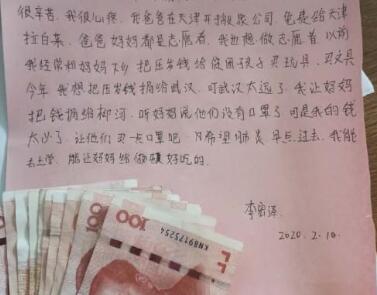 很辛苦,我很心疼,我爸爸在天津开搬家公司,免费给天津
拉白菜,爸爸妈妈都是志愿者,我也想做志愿者以前
我经常和妈妈一起把压岁钱给贫困孩子买玩具、买文具
今年我想把压岁钱捐给武汉,可武汉太远了,我让妈妈
把钱捐给柳河,听妈妈说他们没有口罩了可是我的钱
太少了,让他们买点口罩吧,只希望肺炎早点过去,我能
去上学,能让妈妈给做顿好吃的.
2020.2.10.
100
KN89175254
100